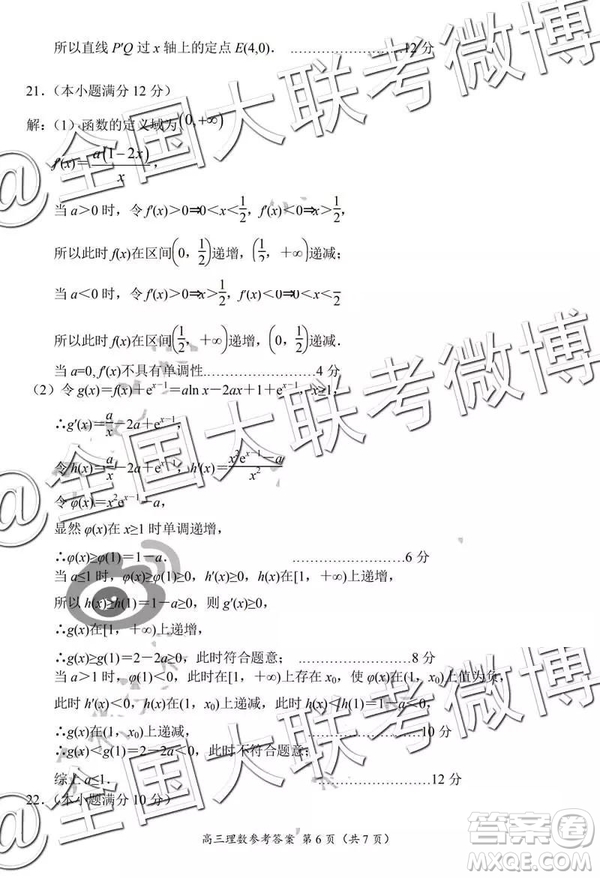 所以直线 P′Q 过 x 轴上的定点 E(4,0). ………………12 分
21.（本小题满分 12 分）
解:（1）函数的定义域为(0,+∞)
f′(x)=a(1-2x)/x,
当 a＞0 时, 令 f′(x)＞0⇒0＜x＜1/2, f′(x)＜0⇒x＞1/2,
所以此时 f(x)在区间(0, 1/2)递增, (1/2, +∞)递减;
当 a＜0 时, 令 f′(x)＞0⇒x＞1/2, f′(x)＜0⇒0＜x＜1/2
所以此时 f(x)在区间(1/2, +∞)递增, (0, 1/2)递减.
当 a=0, f′(x)不具有单调性………………4 分
（2）令 g(x)=f(x)+e^(x-1)=aln x-2ax+1+e^(x-1), x≥1,
∴g′(x)=a/x-2a+e^(x-1),
令 h(x)=a/x-2a+e^(x-1), h′(x)=(x²e^(x-1)-a)/x²
令 φ(x)=x²e^(x-1)-a,
显然 φ(x)在 x≥1 时单调递增,
∴φ(x)≥φ(1)=1-a. ………………6 分
当 a≤1 时, φ(x)≥φ(1)≥0, h′(x)≥0, h(x)在[1, +∞)上递增,
所以 h(x)≥h(1)=1-a≥0, 则 g′(x)≥0,
∴g(x)在[1, +∞)上递增,
∴g(x)≥g(1)=2-2a≥0, 此时符合题意; ………………8 分
当 a＞1 时, φ(1)＜0, 此时在[1, +∞)上存在 x₀, 使 φ(x)在(1, x₀)上值为负,
此时 h′(x)＜0, h(x)在(1, x₀)上递减, 此时 h(x)＜h(1)=1-a＜0,
∴g(x)在(1, x₀)上递减, ………………10 分
∴g(x)＜g(1)=2-2a＜0, 此时不符合题意;
综上 a≤1. ………………12 分
22.（本小题满分 10 分）
高三理数参考答案 第 6 页（共 7 页）
@全国大联考微博
@全国大联考微博
@全国大联考微博
答案圈
MXQE.COM